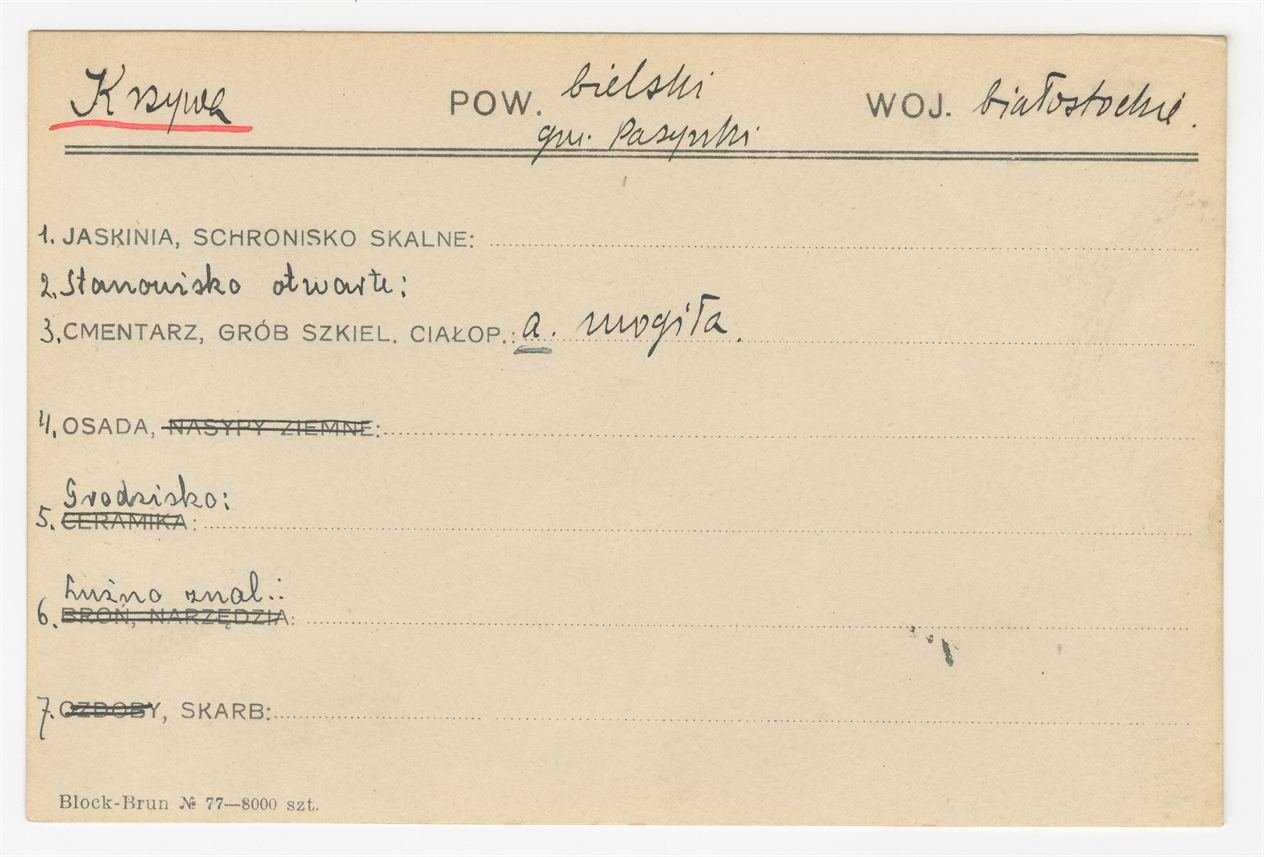 Krzywa POW. bielski WOJ. białostockie.
gm. Pasynki
1. JASKINIA, SCHRONISKO SKALNE:
2. Stanowisko otwarte:
3. CMENTARZ, GRÓB SZKIEL. CIAŁOP.: a. mogiła.
4. OSADA, NASYPY ZIEMNE:
Grodzisko:
5. CERAMIKA:
Luźno znal.:
6. BROŃ, NARZĘDZIA:
7. OZDOBY, SKARB:
Block-Brun № 77—8000 szt.